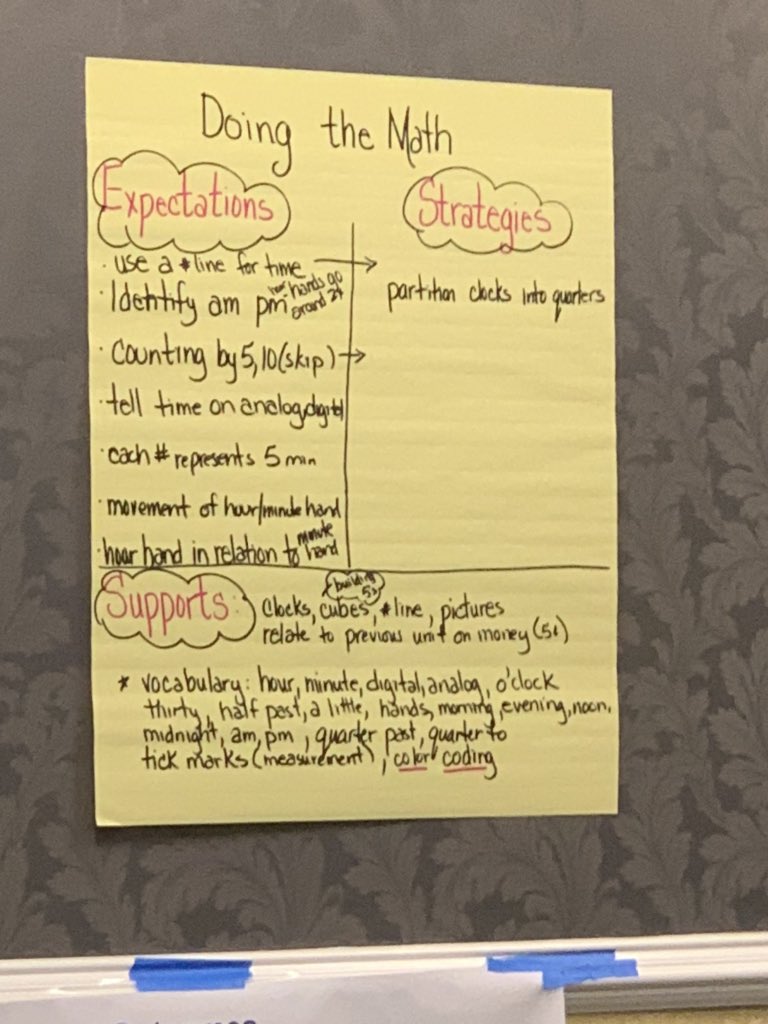 Doing the Math
Expectations
· use a #line for time →
· Identify am pm hour hands go around 2x
· Counting by 5, 10 (skip) →
· tell time on analog, digital
· each # represents 5 min
· movement of hour/minute hand
· hour hand in relation to minute hand
Strategies
partition clocks into quarters
Supports:
building 5s
Clocks, cubes, #line, pictures
relate to previous unit on money (5¢)
* vocabulary: hour, minute, digital, analog, o'clock
thirty, half past, a little, hands, morning, evening, noon,
midnight, am, pm, quarter past, quarter to
tick marks (measurement), color coding